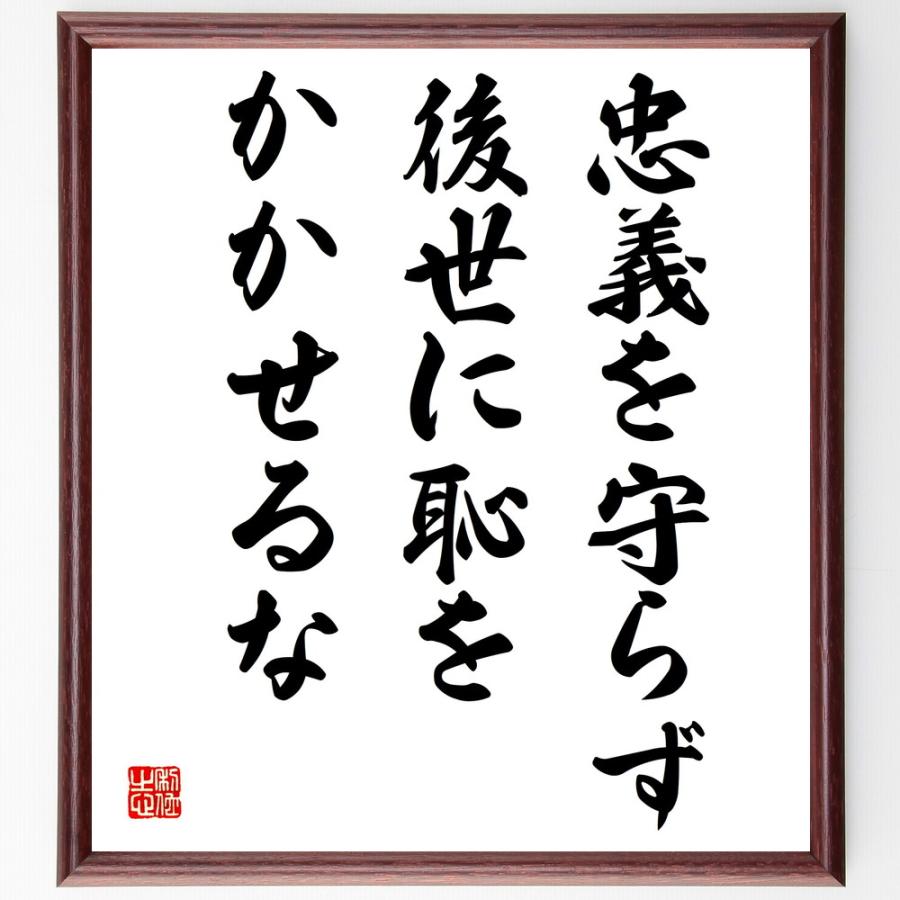 忠義を守らず
後世に恥を
かかせるな